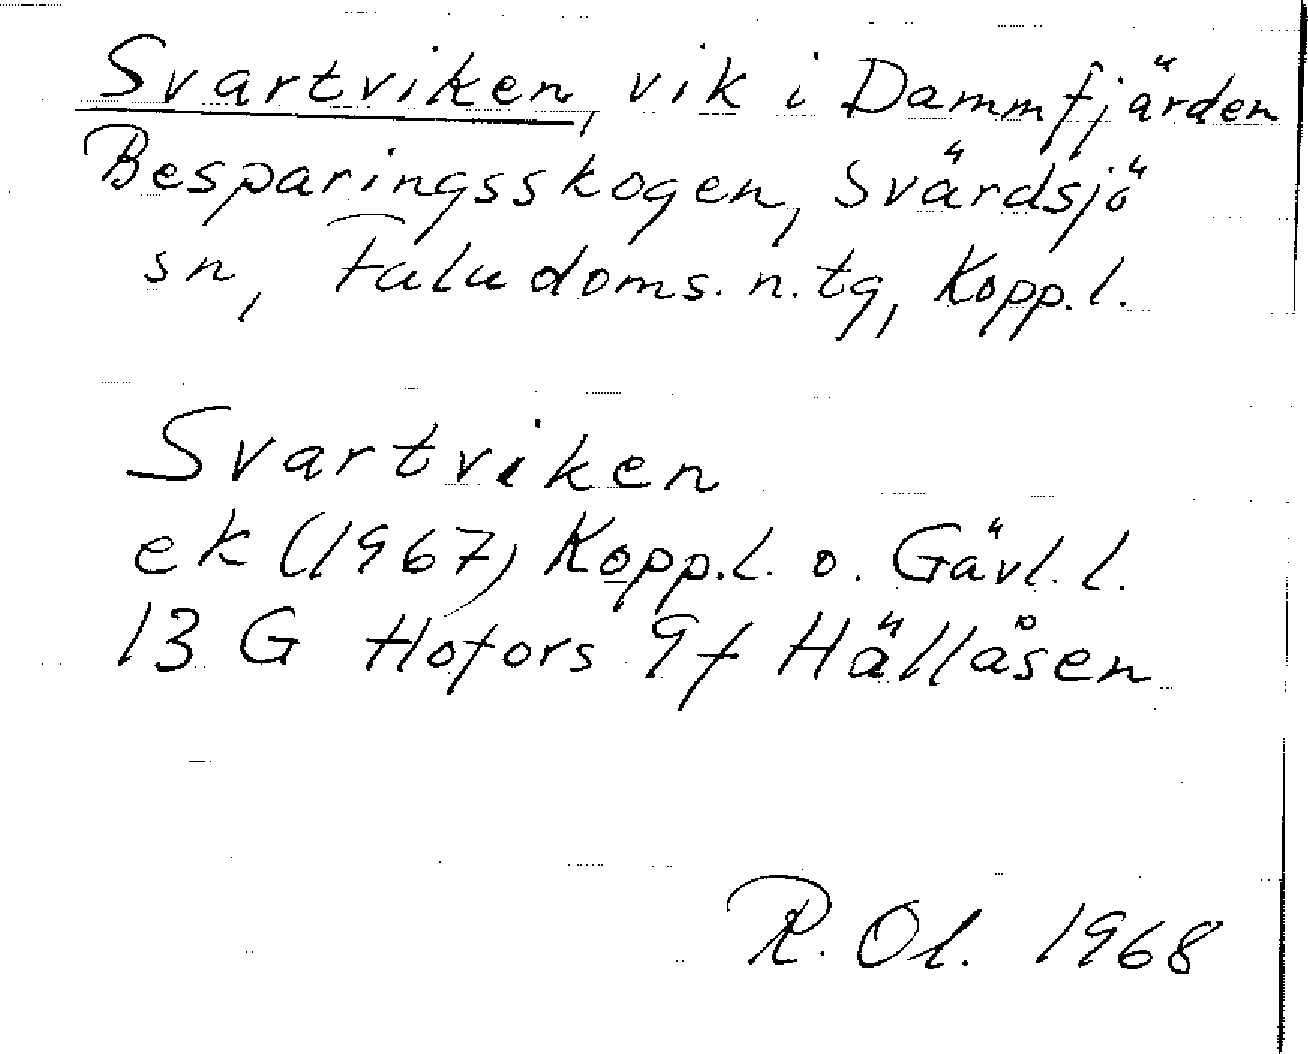 Svartviken, vik i Dammfjärden
Besparingsskogen, Svärdsjö
sn, Faludoms. n. tg, Kopp. l.
Svartviken
ek (1967) Kopp. l. o. Gävl. l.
13 G Hofors 9f Hällåsen
R. Ol. 1968